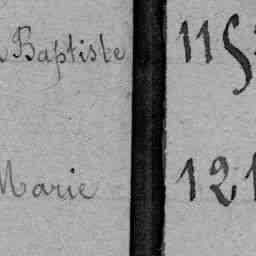 Baptiste 115
Marie 121